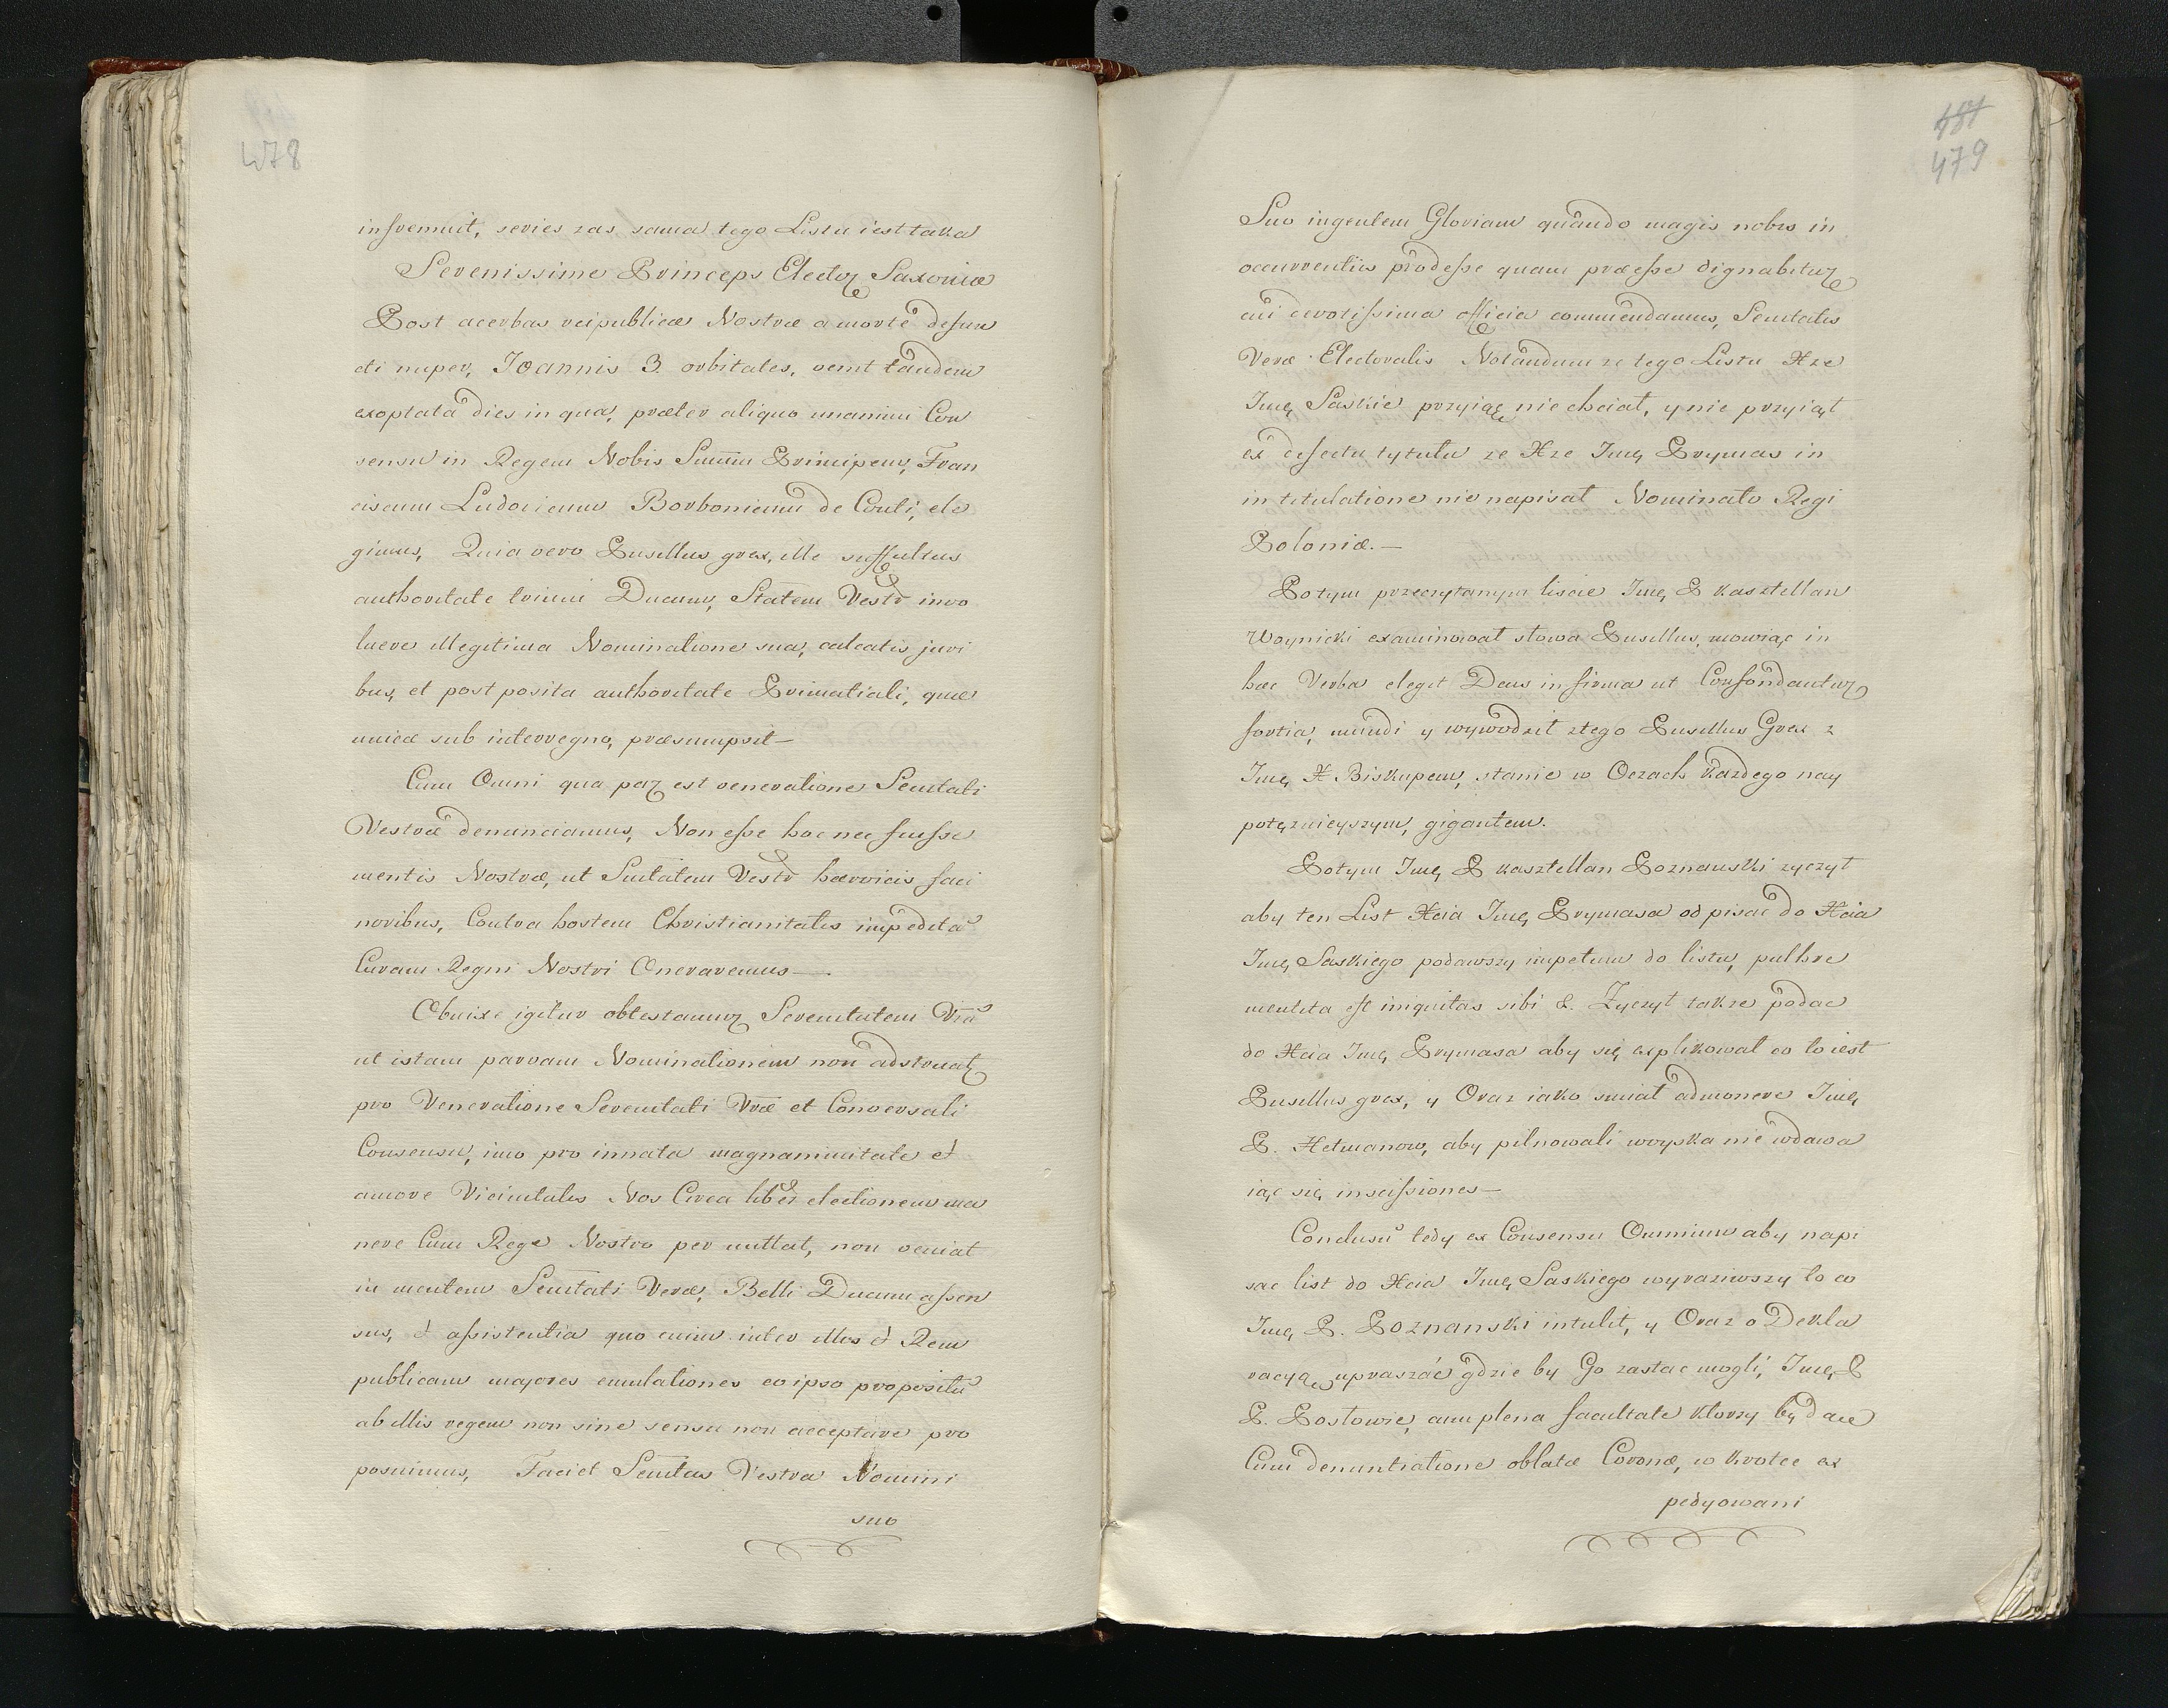 478
infremuit, series zas sama tego Listu iest taka
Serenissime Princeps Elector Saxoniæ
Post acerbas reipublicæ Nostræ a morte defun
cti nuper, Joannis 3. orbitates, venit tandem
exoptata dies in qua, præter aliquo unanimi Con
sensu in Regem Nobis Summ Principem, Fran
ciscum Ludovicum Borbonicum de Conti, ele
gimus, Quia vero Pusellus grex, ille suffultus
authoritate trium Ducum, Statem Vestr invo
luere illegitima Nominatione sua, calcatis juri
bus, et post posita authoritate Primatiali, quæ
unica sub interregno, præsumpsit —
Cum Omni qua par est veneratione Senitati
Vestræ denunciamus, Non esse hoc nec fuisse
mentis Nostræ, ut Snitatem Vestr hærricis faci
noribus, Contra hostem Christianitatis impedita
Curam Regni Nostri Oneraremus —
Obnixe igitur obtestamur Serenitatem Vrã
ut istam parvam Nominationem non adstruat
pro Veneratione Serenitati Vræ et Conversali
Consensu, imo pro innata magnanimitate et
amore Vicinitatis Nos Circa liber electionem ma
nere Cum Rege Nostro per mittat, non veniat
in mentem Senitati Veræ, Belli Ducum assen
sus, et assistentia quo enim inter illos et Rem
publicam majores emulationes eo ipso propositu
ab illis regem non sine sensu non acceptare pro
posuimus, Faciet Senitas Vestra Nomini
suo
487
479
Suo ingentem Gloriam quando magis nobis in
occurrentiis prodesse quam præesse dignabitur
cui devotissima officia commendamus, Senitatis
Veræ Electoralis Notandum ze tego Listu Xze
Jmę Saskie przyiąc nie chciał, y nie przyiął
ex defectu tytułu ze Xze Jmę Prymas in
intitulatione nie napisał Nominato Regi
Poloniæ. —
Potym przeczytanym liscie Jmę P kasztellan
Woynicki examinował słowa Pusellus, mowiąc in
hæc Verba elegit Deus infirma ut Confondantur
fortia, mundi y wywodził ztego Pusellus Grex z
Jmę X Biskupem, stanie w Oczach każdego nay
potęznieyszym, gigantem.
Potym Jmę P kasztellan Poznanski zyczył
aby ten List Xcia Jmę Prymasa od pisac do Xcia
Jmę Saskiego podawszy impetum do listu, pulhre
mentita est iniquitas sibi &. Zyczył takze podac
do Xcia Jmę Prymasa aby się explikował co to iest
Pusellus grex, y Oraz iako smiał admonere Jmę
P. Hetmanow, aby pilnowali woyska nie wdawa
iąc się inscissiones —
Conclusu tedy ex Consensu Omnium aby napi
sac list do Xcia Jmę Saskiego wyraziwszy to co
Jmę P. Poznanski intulit, y Oraz o Dekla
racyą upraszać gdzie by Go zastac mogli, Jmę P
P. Posłowie, cum plena facultate ktorzy będące
Cum denuntiatione oblatæ Coronæ, w krotce ex
pedyowani